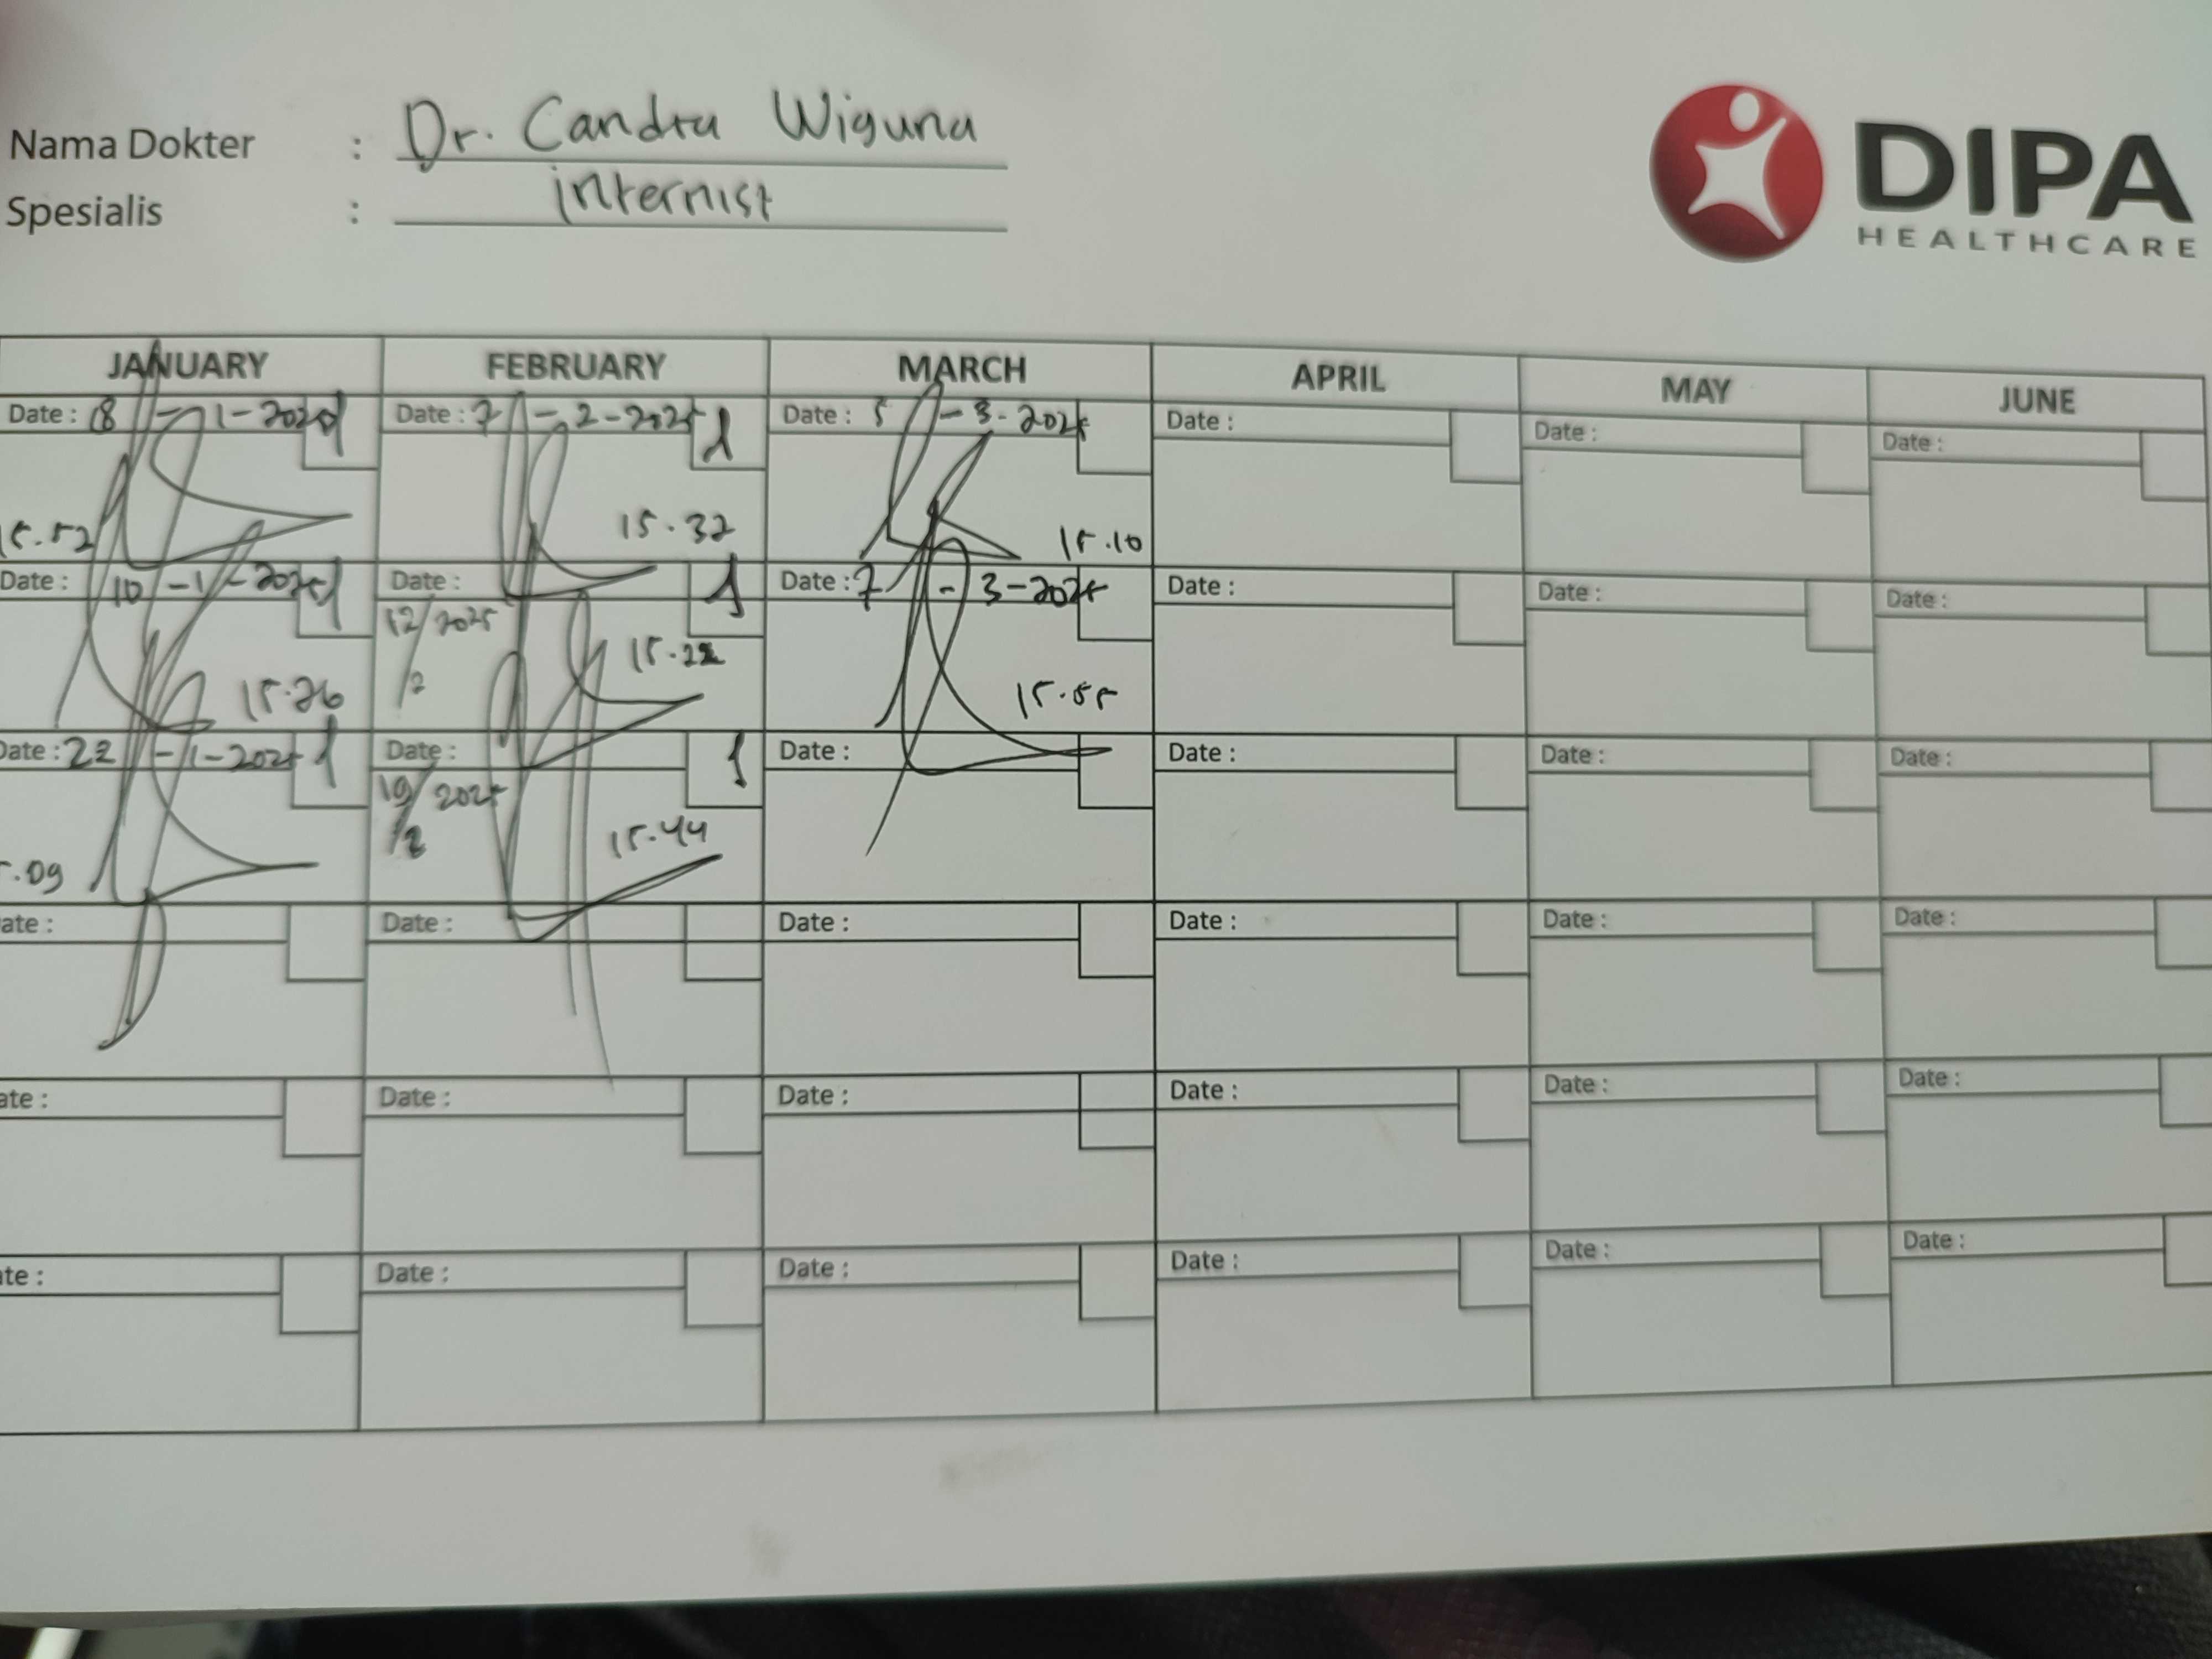 Nama Dokter : Dr. Candra Wiguna
Spesialis : internist
DIPA
HEALTHCARE
JANUARY FEBRUARY MARCH APRIL MAY JUNE
Date : 8 - 1 - 2025 Date : 7 - 2 - 2025 Date : 5 - 3 - 2025 Date : Date : Date :
15.52 15.32 15.10
Date : 10 - 1 - 2025 Date : Date : 7 - 3 - 2025 Date : Date : Date :
12/2 2025
15.26 15.22 15.55
Date : 22 - 1 - 2025 Date : Date : Date : Date : Date :
19/2 2025
.09 15.44
ate : Date : Date : Date : Date : Date :
ate : Date : Date : Date : Date : Date :
te : Date : Date : Date : Date : Date :